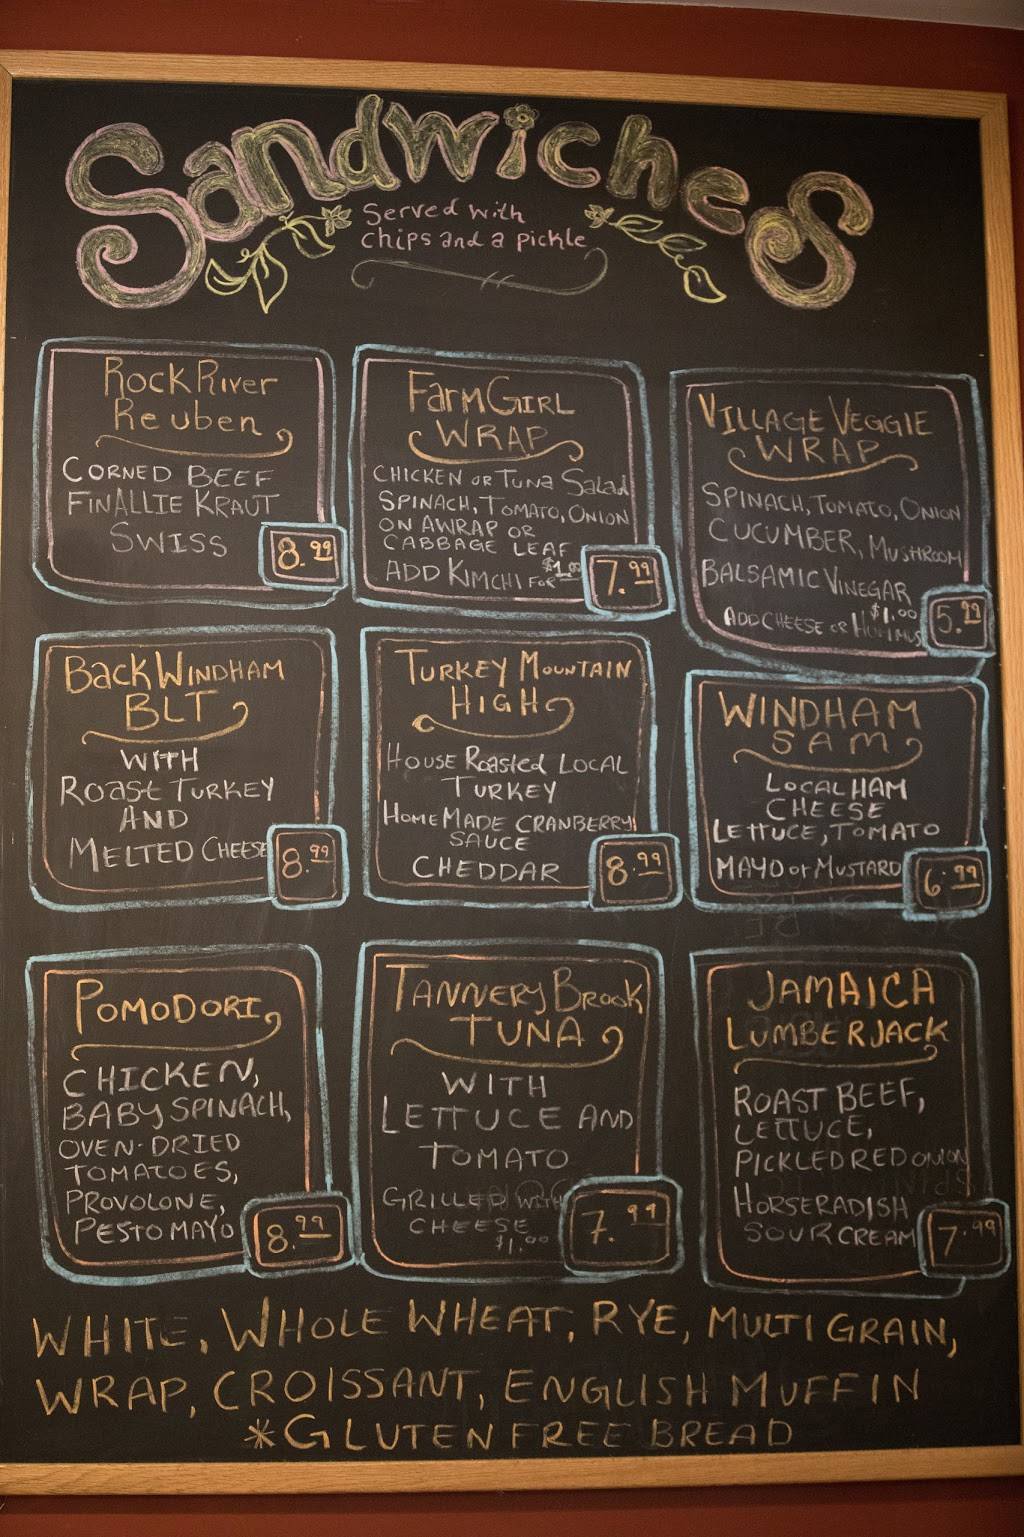 Sandwiches
Served with
chips and a pickle
Rock River
Reuben
CORNED BEEF
FINALLIE KRAUT
SWISS
8.99
FARM GIRL
WRAP
CHICKEN OR TUNA Salad
SPINACH, TOMATO, ONION
ON A WRAP OR
CABBAGE LEAF
ADD KIMCHI FOR $1.00
7.99
VILLAGE VEGGIE
WRAP
SPINACH, TOMATO, ONION
CUCUMBER, MUSHROOM
BALSAMIC VINEGAR
$1.00
ADD CHEESE OR HUMMUS
5.99
BACK WINDHAM
BLT
WITH
ROAST TURKEY
AND
MELTED CHEESE
8.99
TURKEY MOUNTAIN
HIGH
HOUSE Roasted LOCAL
TURKEY
HOMEMADE CRANBERRY
SAUCE
CHEDDAR
8.99
WINDHAM
SAM
LOCAL HAM
CHEESE
LETTUCE, TOMATO
MAYO or MUSTARD
6.99
POMODORI
CHICKEN,
BABY SPINACH,
OVEN-DRIED
TOMATOES,
PROVOLONE,
PESTO MAYO
8.99
TANNERY BROOK
TUNA
WITH
LETTUCE AND
TOMATO
GRILLED WITH
CHEESE
$1.00
7.99
JAMAICA
LUMBERJACK
ROAST BEEF,
LETTUCE,
PICKLED RED ONION
HORSERADISH
SOUR CREAM
7.99
WHITE, WHOLE WHEAT, RYE, MULTI GRAIN,
WRAP, CROISSANT, ENGLISH MUFFIN
*GLUTEN FREE BREAD